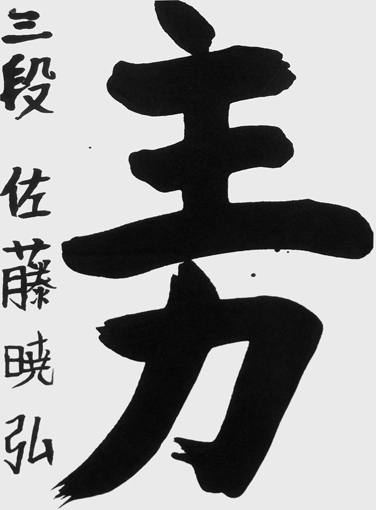 主力
三段 佐藤暁弘